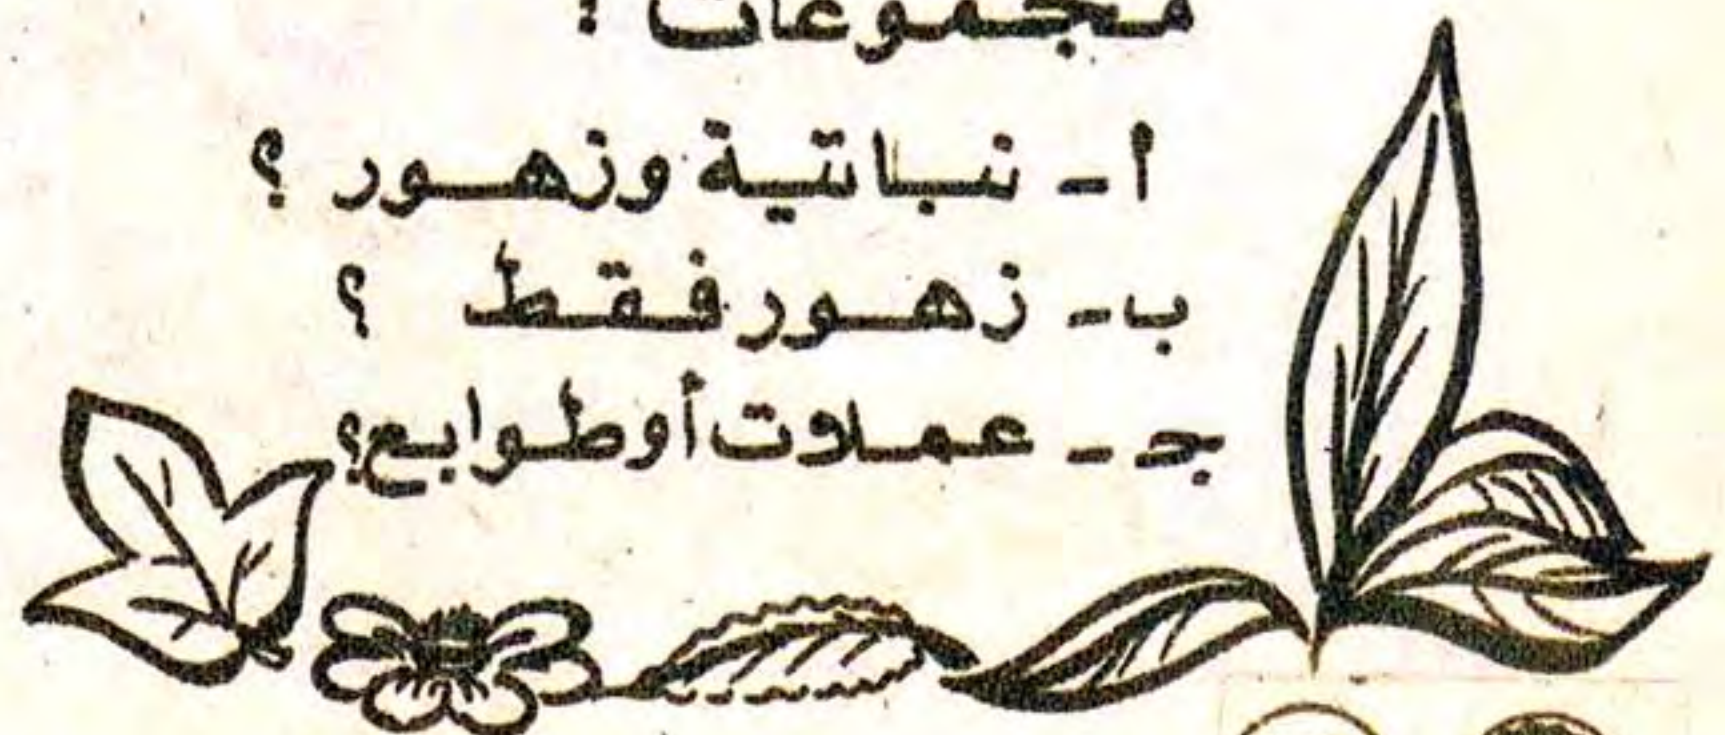 مجموعات :
أ - نباتية وزهور ؟
ب - زهور فقط ؟
جـ - عملات أو طوابع ؟